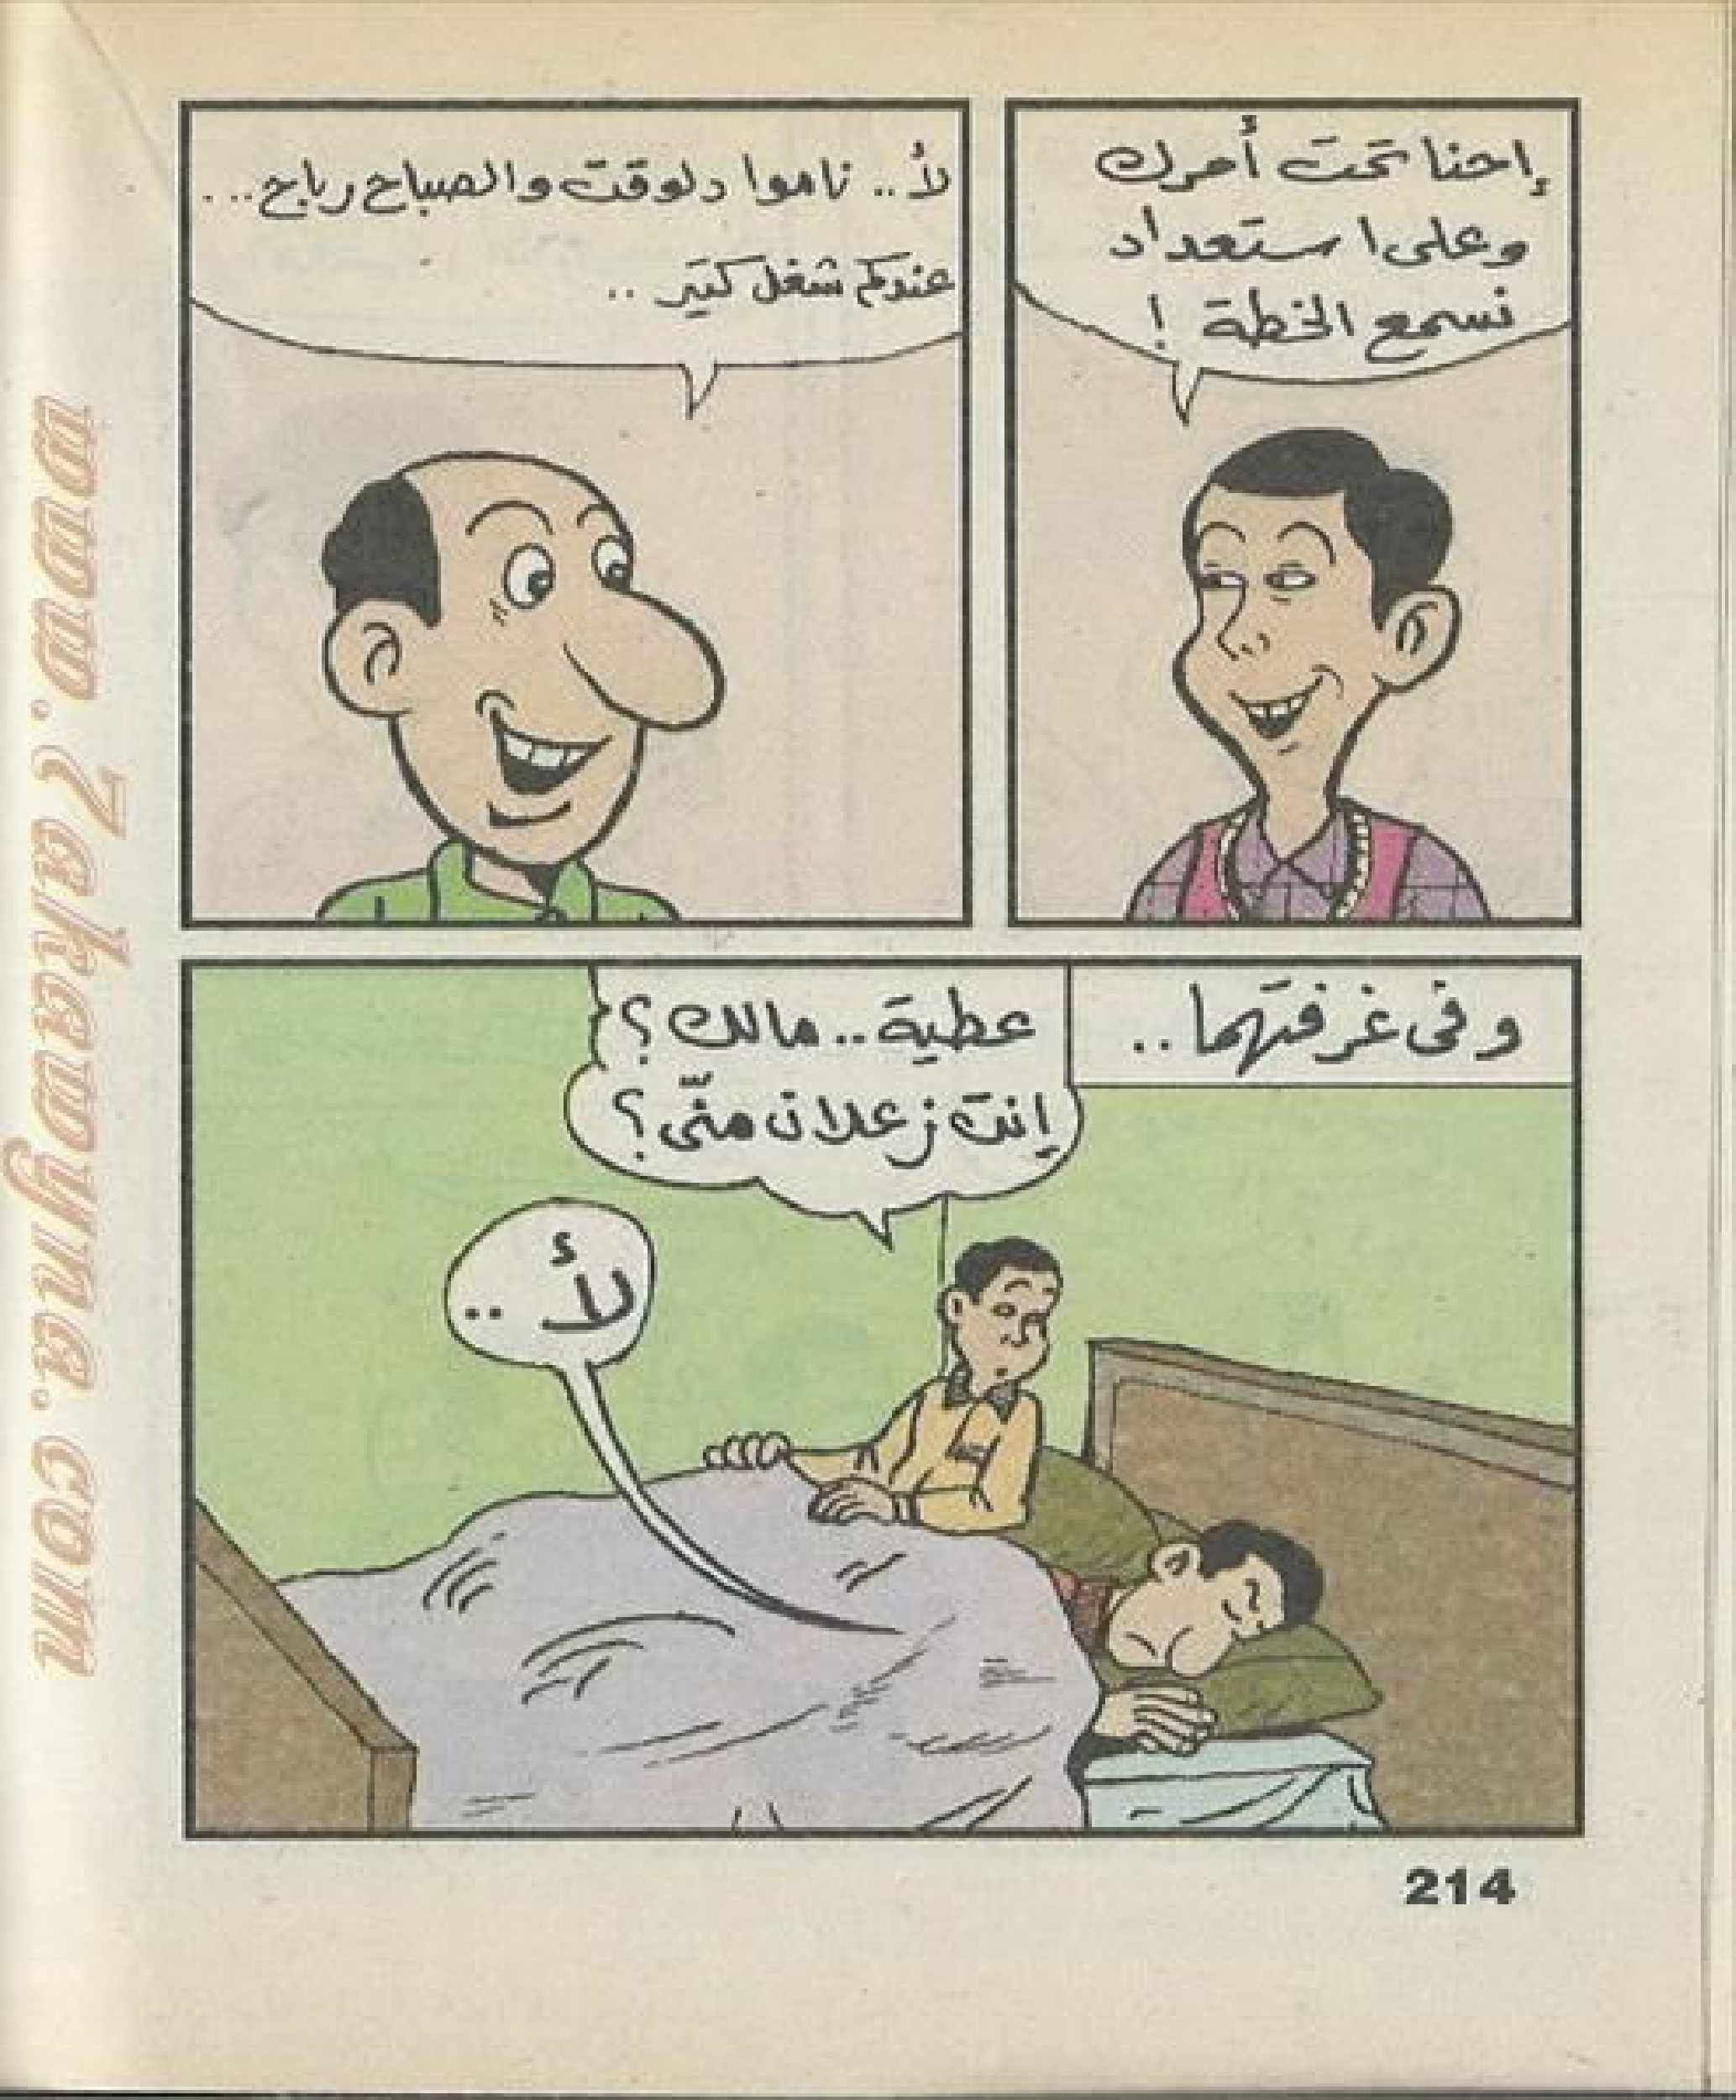 إحنا تحت أمرك
وعلى استعداد
نسمع الخطة !
لأ.. ناموا دلوقت والصباح رباح...
عندكم شغل كتير ..
وفى غرفتهما..
عطية.. مالك؟
إنت زعلان منّى؟
لأ ..
214
www.7akawyna.com